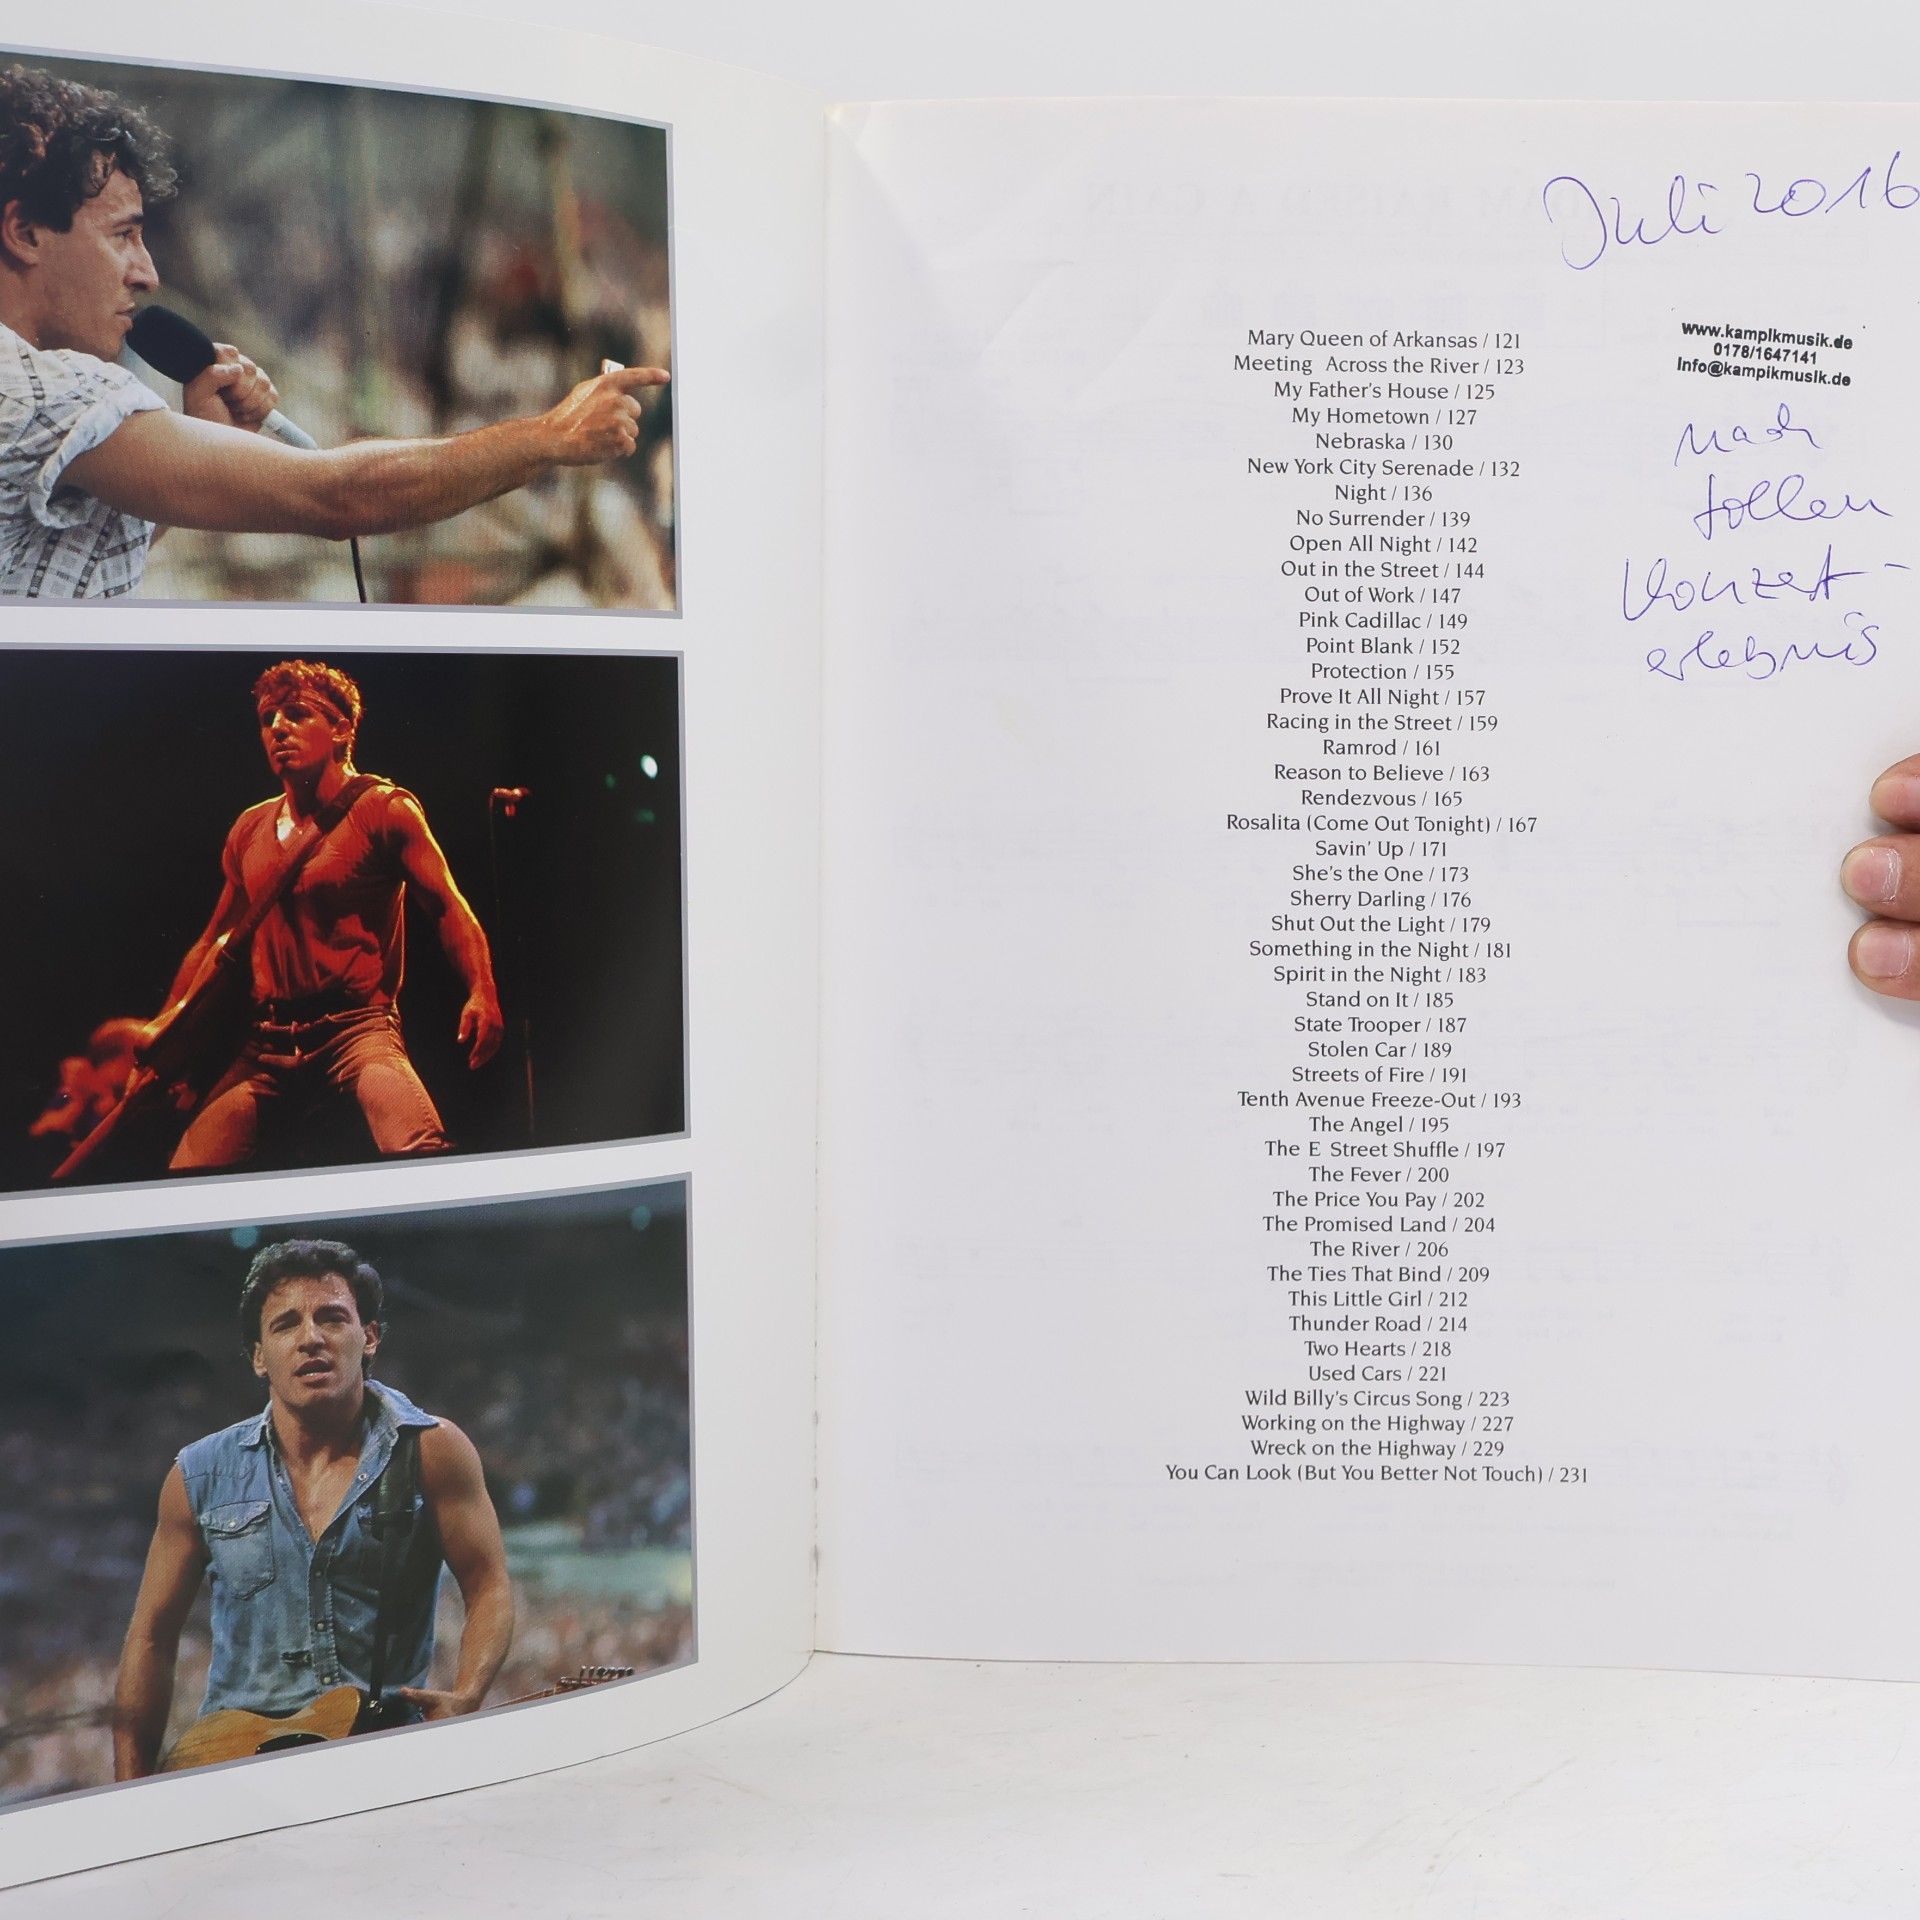 Juli 2016
www.kampikmusik.de
0178/1647141
Info@kampikmusik.de
nach
tollen
Konzert-
erlebnis
Mary Queen of Arkansas / 121
Meeting Across the River / 123
My Father's House / 125
My Hometown / 127
Nebraska / 130
New York City Serenade / 132
Night / 136
No Surrender / 139
Open All Night / 142
Out in the Street / 144
Out of Work / 147
Pink Cadillac / 149
Point Blank / 152
Protection / 155
Prove It All Night / 157
Racing in the Street / 159
Ramrod / 161
Reason to Believe / 163
Rendezvous / 165
Rosalita (Come Out Tonight) / 167
Savin' Up / 171
She's the One / 173
Sherry Darling / 176
Shut Out the Light / 179
Something in the Night / 181
Spirit in the Night / 183
Stand on It / 185
State Trooper / 187
Stolen Car / 189
Streets of Fire / 191
Tenth Avenue Freeze-Out / 193
The Angel / 195
The E Street Shuffle / 197
The Fever / 200
The Price You Pay / 202
The Promised Land / 204
The River / 206
The Ties That Bind / 209
This Little Girl / 212
Thunder Road / 214
Two Hearts / 218
Used Cars / 221
Wild Billy's Circus Song / 223
Working on the Highway / 227
Wreck on the Highway / 229
You Can Look (But You Better Not Touch) / 231